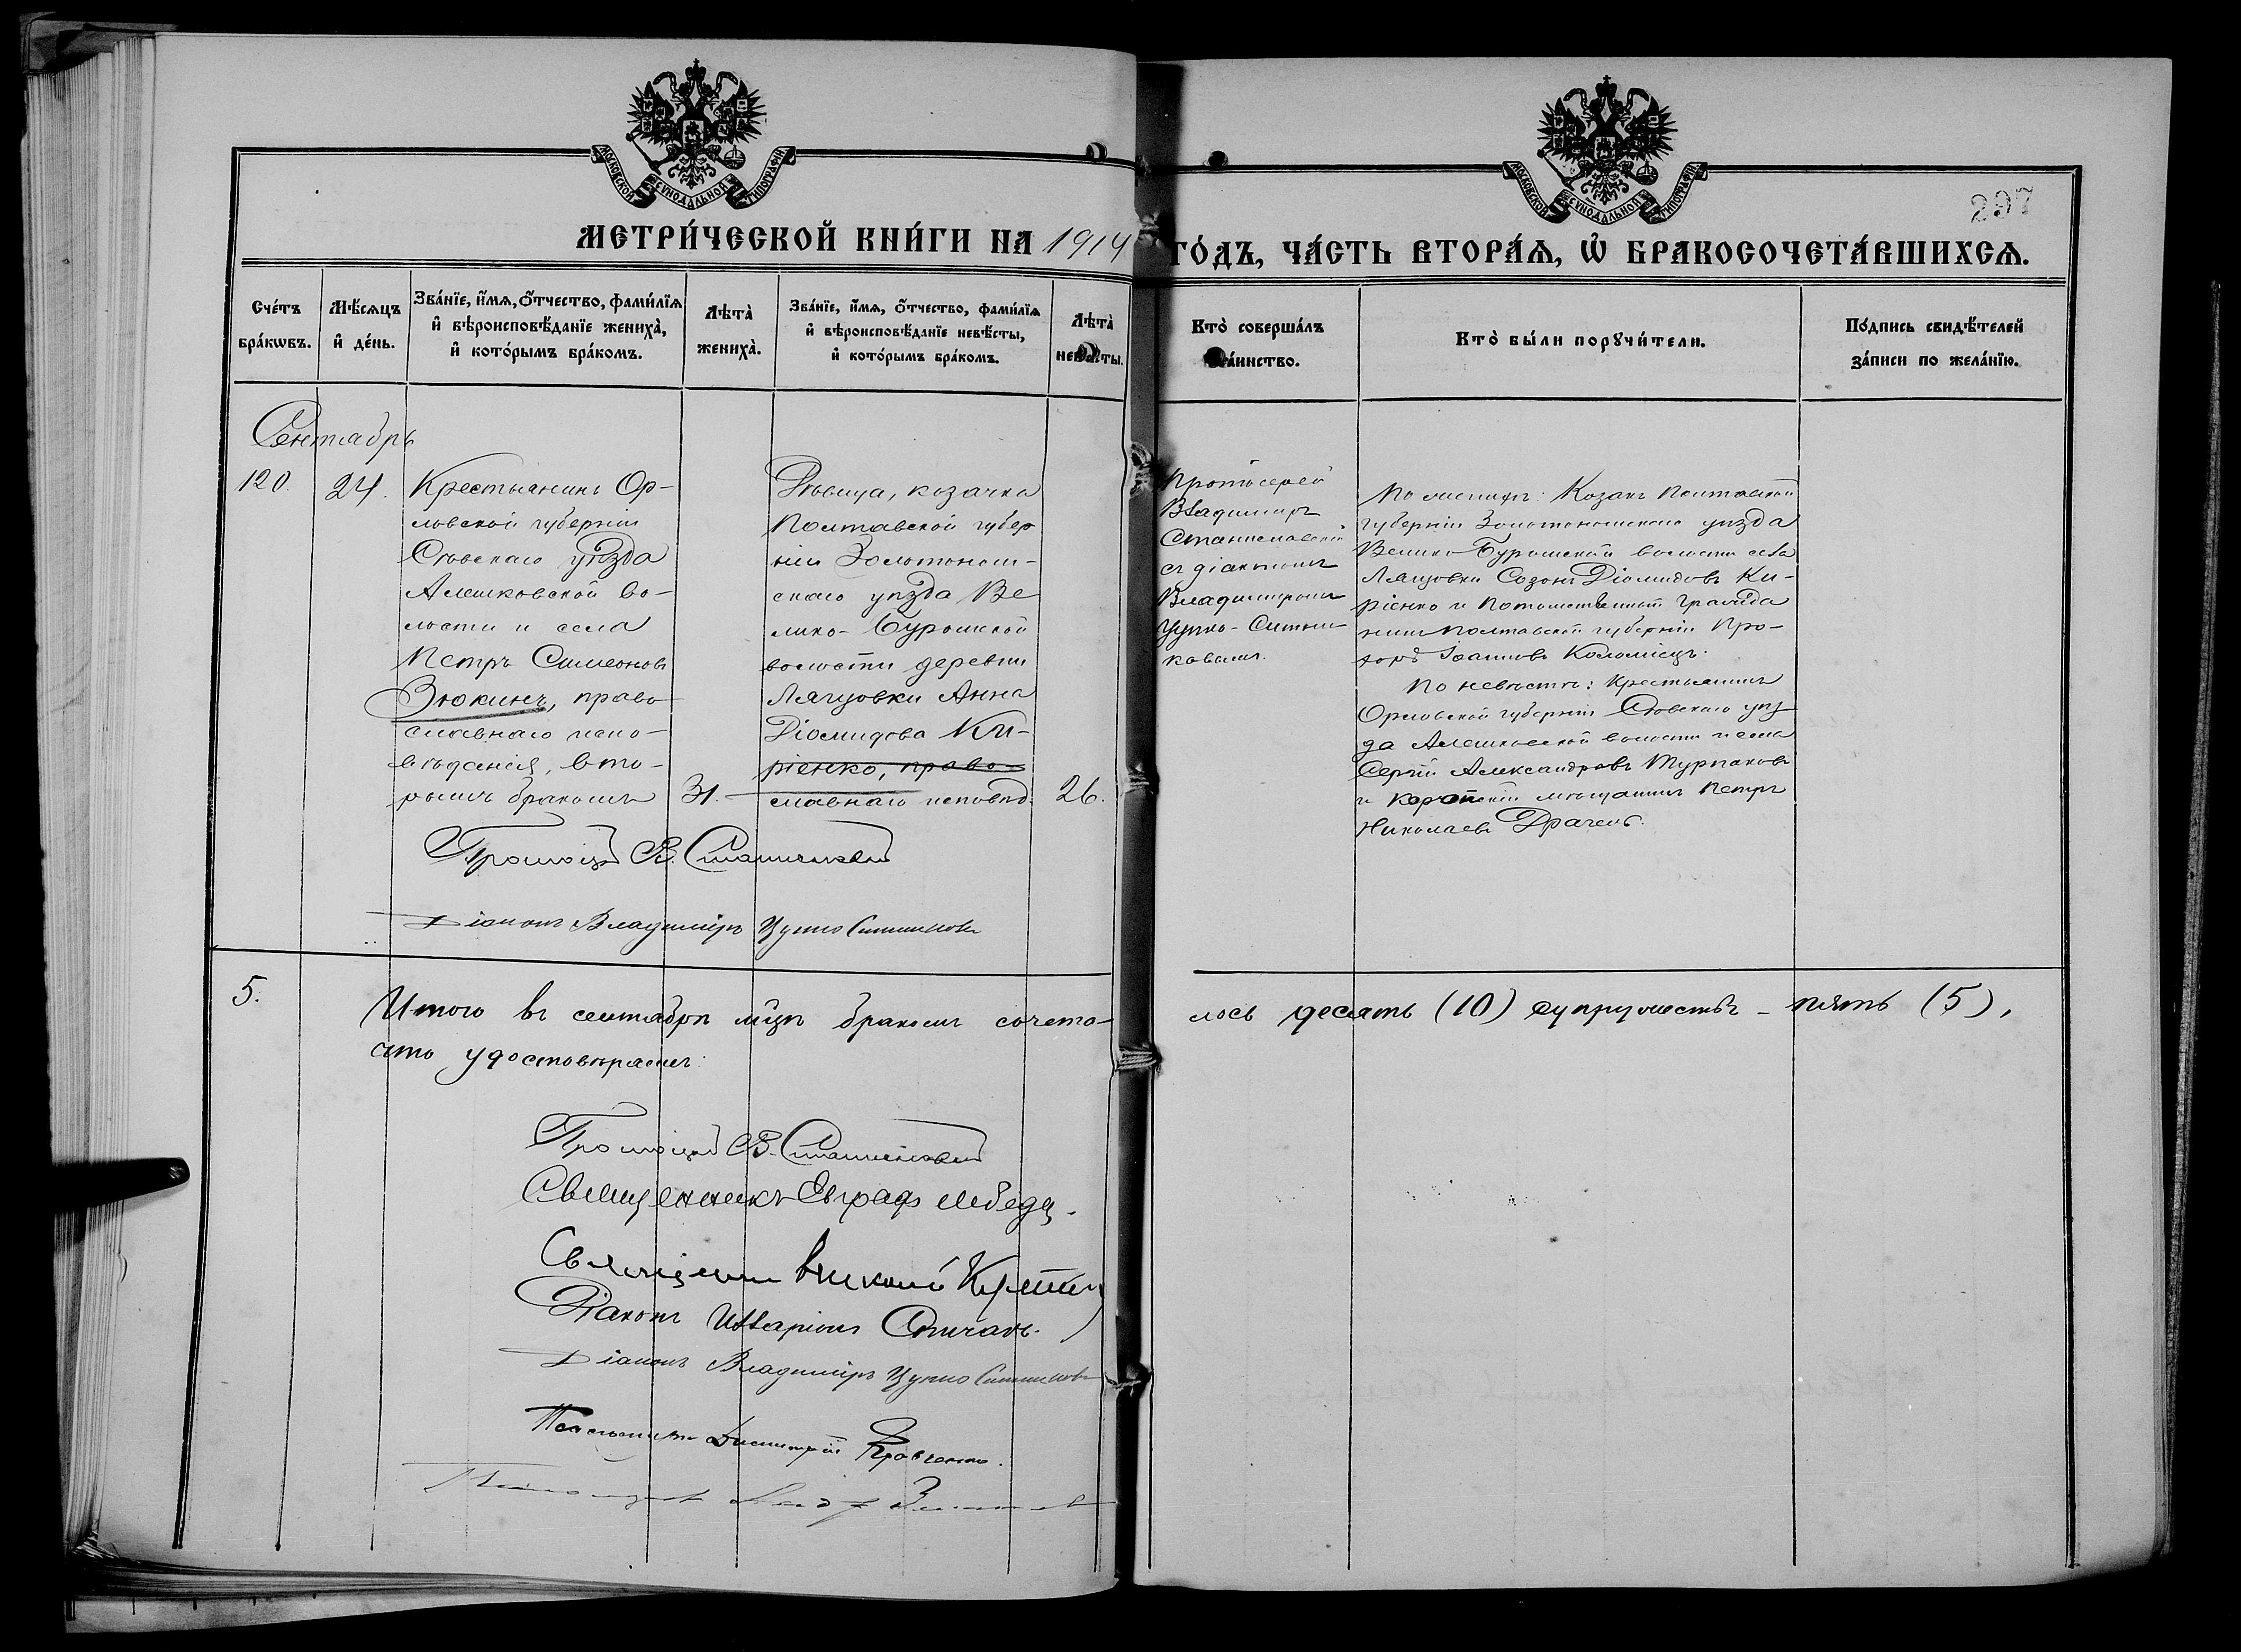 МОСКОВСКОЙ СѴНОДАЛЬНОЙ ТИПОГРАФІИ
МОСКОВСКОЙ СѴНОДАЛЬНОЙ ТИПОГРАФІИ
297
МЕТРИ́ЧЕСКОЙ КНИ́ГИ НА 1914 ГО́ДЪ, ЧА́СТЬ ВТОРА́Ѧ, Ѡ҆ БРАКОСОЧЕТА́ВШИХСѦ.
Сче́тъ
бра́кѡвъ.
Мѣ́сѧцъ
и҆ де́нь.
Зва́нїе, и҆́мѧ, ѻ҆́тчество, фами́лїѧ
и҆ вѣроисповѣ́данїе жениха̀,
и҆ кото́рымъ бра́комъ.
Лѣта̀
жениха̀.
Зва́нїе, и҆́мѧ, ѻ҆́тчество, фами́лїѧ
и҆ вѣроисповѣ́данїе невѣ́сты,
и҆ кото́рымъ бра́комъ.
Лѣта̀
невѣ́сты.
Кто̀ соверша́лъ
та́инство.
Кто̀ бы́ли порꙋчи́тели.
По́дпись свидѣ́телей
за́писи по жела́нїю.
Сентябрь
120.
24.
Крестьянинъ Ор-
ловской губерніи
Сѣвскаго уѣзда
Алешковской во-
лости и села
Петръ Симеоновъ
Зюкинъ, право
славнаго испо-
вѣданія, вто-
рымъ бракомъ
31.
Дѣвица, козачка
Полтавской губер
ніи Золотонош-
скаго уѣзда Ве
лико-Буромской
волости деревни
Лящовки Анна
Діомидова Ки-
ріенко, право-
славнаго исповѣд.
26.
Протоіерей
Владимиръ
Станиславскій
съ діакономъ
Владимиромъ
Цупко-Ситни-
ковымъ.
По женихѣ: Козакъ Полтавской
губерніи Золотоношскаго уѣзда
Велико-Буромской волости села
Лящовки Созонъ Діомидовъ Ки-
ріенко и Потомственный гражда
нинъ Полтавской губерніи Про-
хоръ Іоанновъ Коломіецъ.
По невѣстѣ: Крестьянинъ
Орловской губерніи Сѣвскаго уѣз
да Алешковской волости и села
Сергій Александровъ
и мѣщанинъ Петръ
Николаевъ Драчевъ.
Протоіерей В. Станиславскій
Діаконъ Владиміръ Цупко Ситниковъ
5.
Итого въ сентябрѣ мцѣ бракомъ сочета-
лось десять (10) супружествъ - пять (5),
что удостовѣряемъ:
Протоіерей В. Станиславскій
Священникъ Евграфъ Лебеде.
Священникъ Николай
Діаконъ Илларіонъ Спичакъ.
Діаконъ Владиміръ Цупко Ситниковъ
Псаломщикъ Димитрій Кравченко.
Псаломщикъ